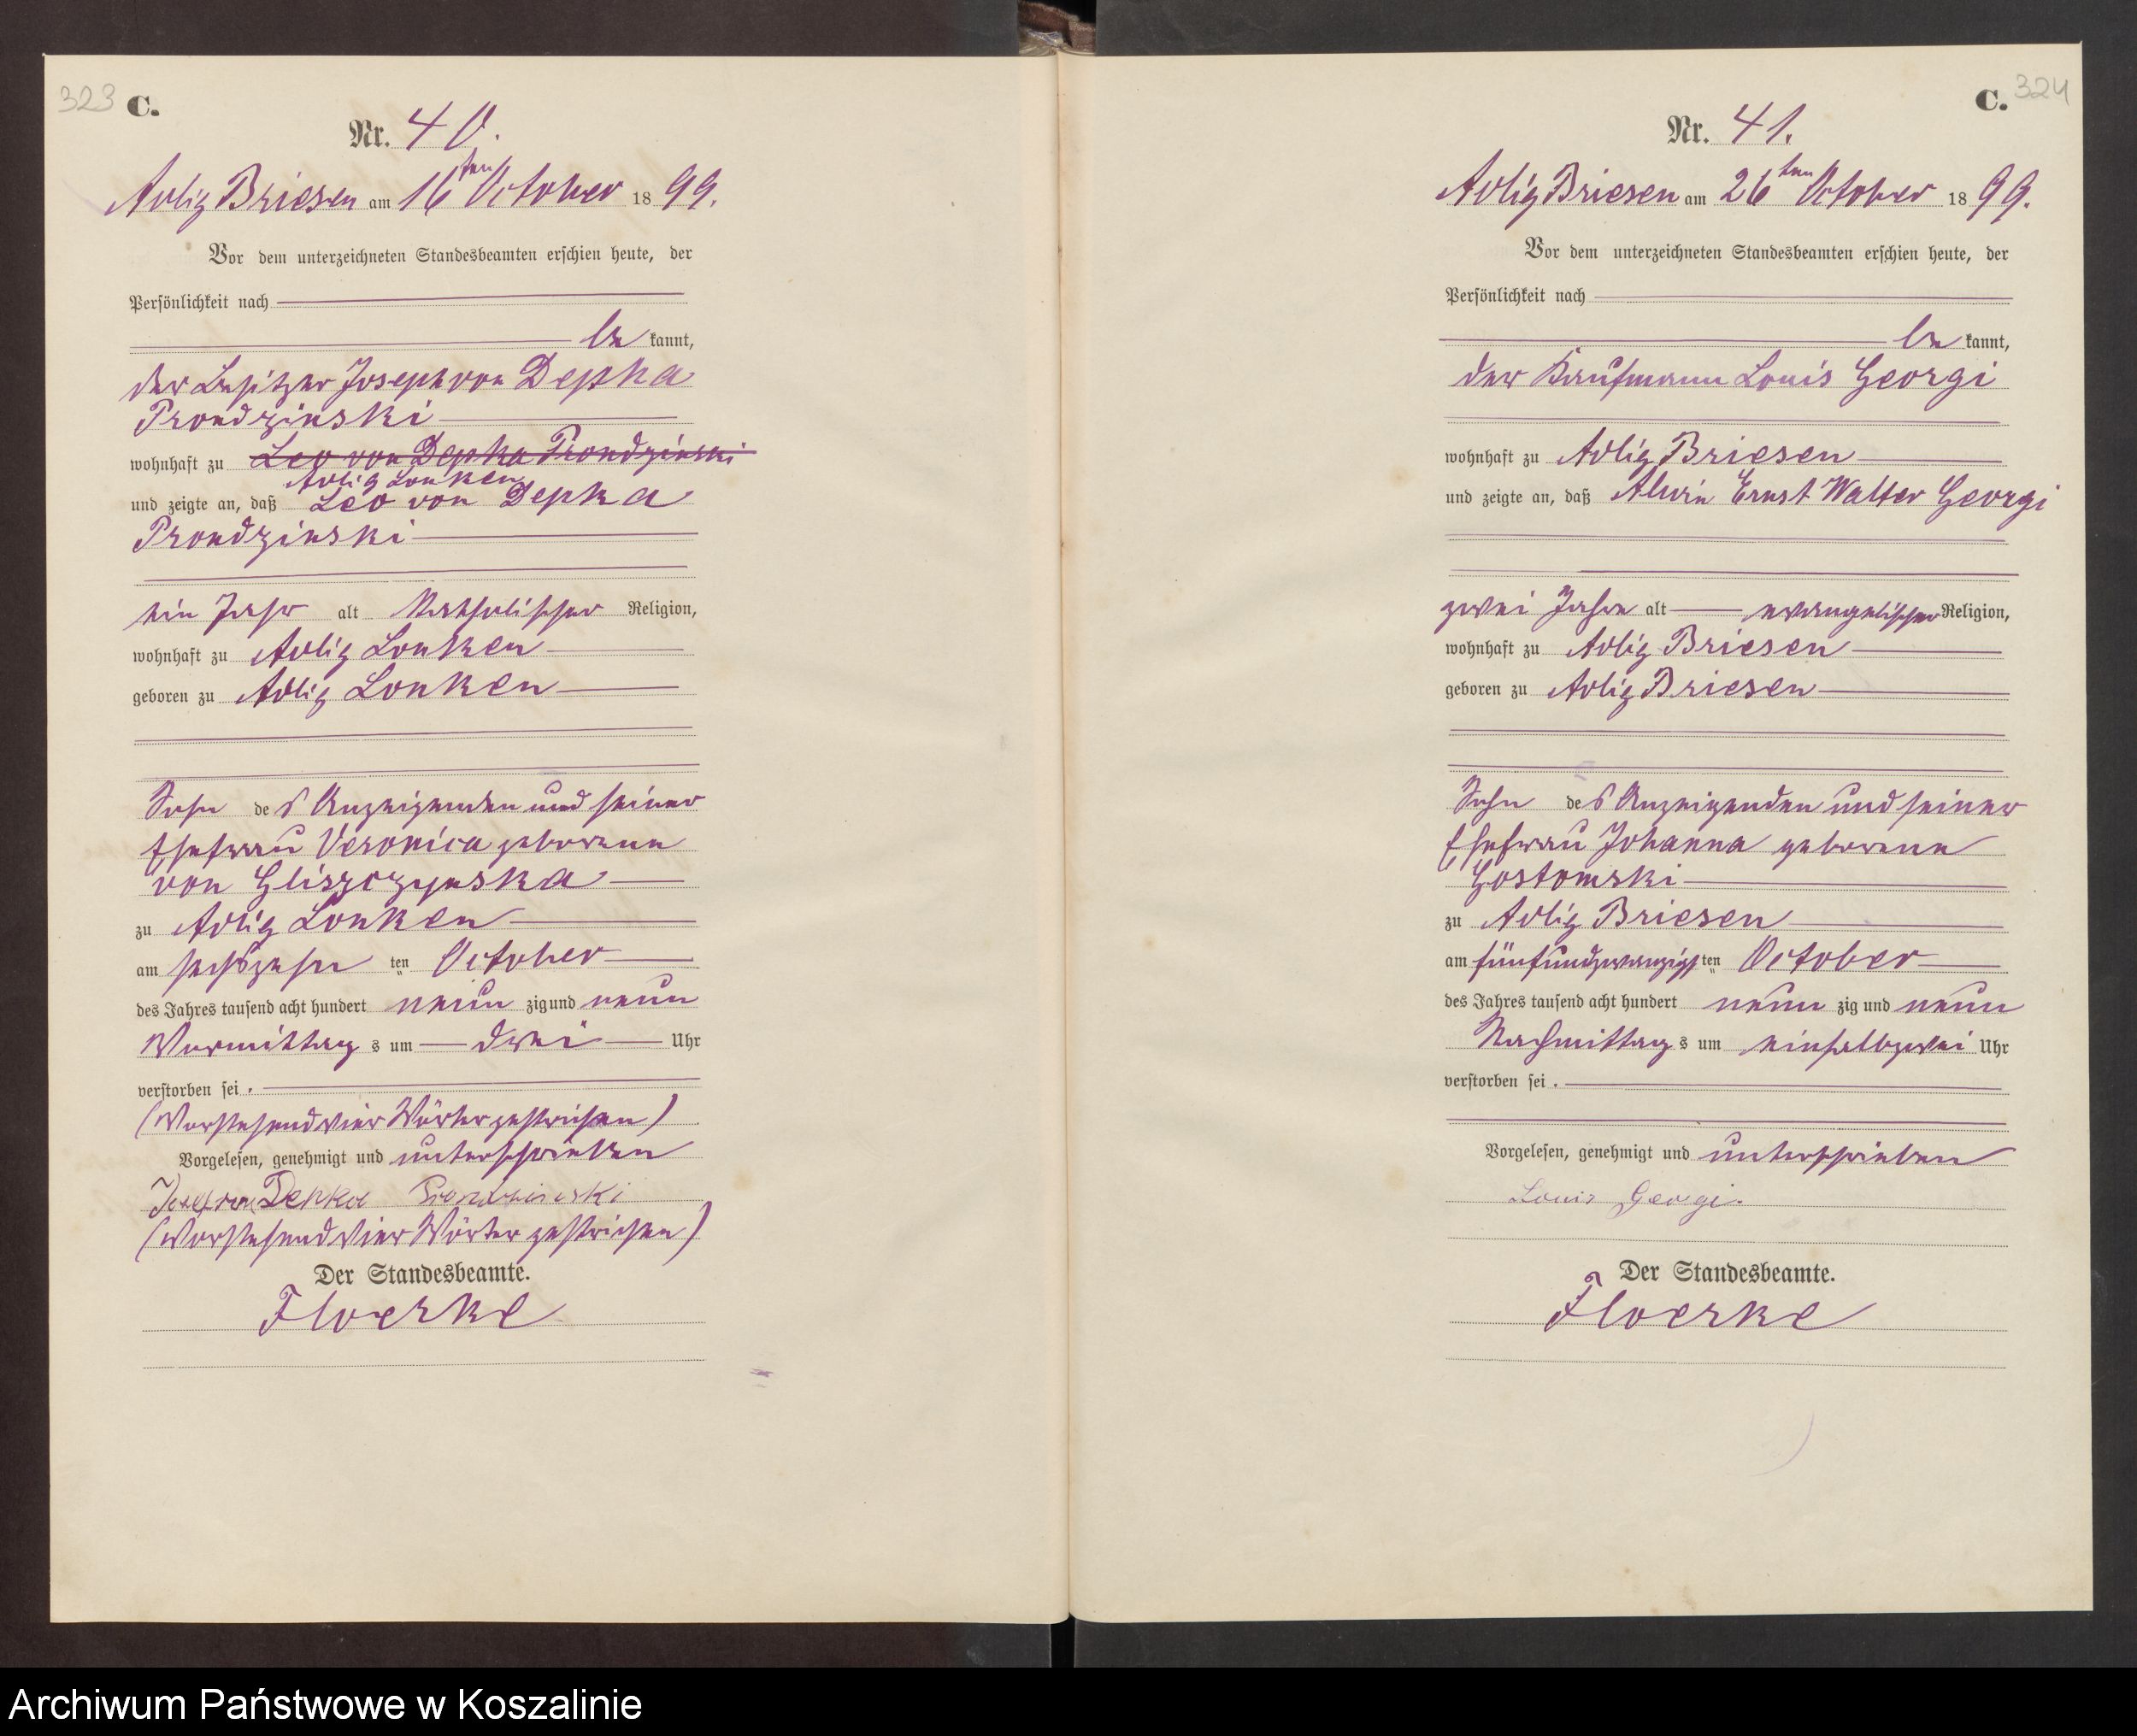 323 C.
Nr. 40.
Adlig Briesen am 16ten October 1899.
Vor dem unterzeichneten Standesbeamten erschien heute, der
Persönlichkeit nach
bekannt,
der Besitzer Joseph von Depka
Prondzinski
wohnhaft zu Leo von Depka Prondzinski
Adlig Lonken
und zeigte an, daß Leo von Depka
Prondzinski
ein Jahr alt katholischer Religion,
wohnhaft zu Adlig Lonken
geboren zu Adlig Lonken
Sohn des Anzeigenden und seiner
Ehefrau Veronica geborene
von Gliszczynska
zu Adlig Lonken
am sechszehn ten October
des Jahres tausend acht hundert neun zig und neun
Vormittags um drei Uhr
verstorben sei.
(Vorstehend vier Wörter gestrichen)
Vorgelesen, genehmigt und unterschrieben
Josef von Depka Prondzinski
(Vorstehend vier Wörter gestrichen)
Der Standesbeamte.
Floerke
C. 324
Nr. 41.
Adlig Briesen am 26ten October 1899.
Vor dem unterzeichneten Standesbeamten erschien heute, der
Persönlichkeit nach
bekannt,
der Kaufmann Louis Georgi
wohnhaft zu Adlig Briesen
und zeigte an, daß Alwin Ernst Walter Georgi
zwei Jahre alt evangelischer Religion,
wohnhaft zu Adlig Briesen
geboren zu Adlig Briesen
Sohn des Anzeigenden und seiner
Ehefrau Johanna geborene
Gostomski
zu Adlig Briesen
am fünfundzwanzigsten October
des Jahres tausend acht hundert neun zig und neun
Nachmittags um einhalbzwei Uhr
verstorben sei.
Vorgelesen, genehmigt und unterschrieben
Louis Georgi.
Der Standesbeamte.
Floerke
Archiwum Państwowe w Koszalinie